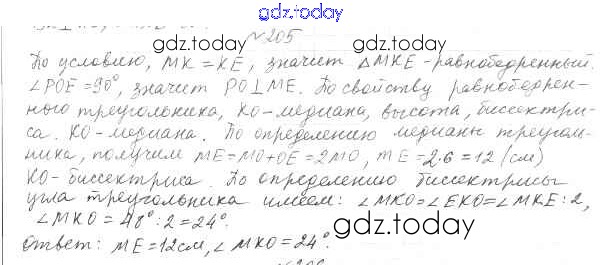 gdz.today
№205
gdz.today gdz.today
По условию, MK = KE, значит △MKE - равнобедренный.
∠POE = 90°, значит PO⊥ME. По свойству равнобедрен-
ного треугольника, KO - медиана, высота, биссектри-
са. KO - медиана. По определению медианы треуголь-
ника, получим ME = MO + OE = 2MO, ME = 2·6 = 12 (см)
KO - биссектриса. По определению биссектрисы
угла треугольника имеем: ∠MKO = ∠EKO = ∠MKE : 2,
∠MKO = 48° : 2 = 24°.
Ответ: ME = 12 см, ∠MKO = 24°.
gdz.today gdz.today